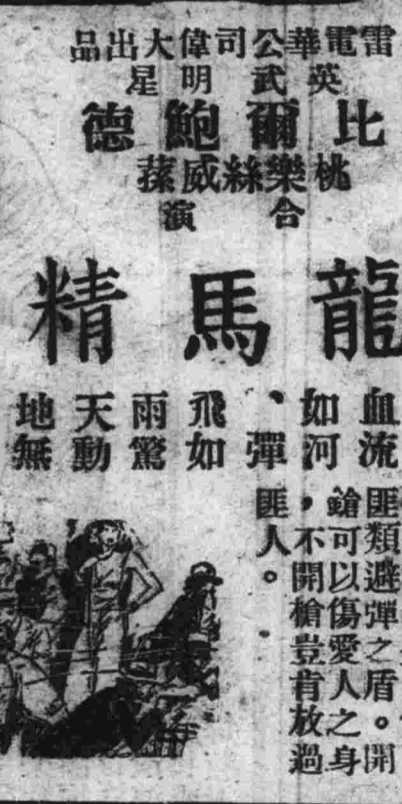 雷電華公司偉大出品
英武明星
比爾鮑德
桃樂絲威蓀
合演
龍馬精
血流如河、彈飛如雨驚天動地無
匪類避彈之盾。開
鎗可以傷愛人之身
，不開槍豈肯放過
匪人。